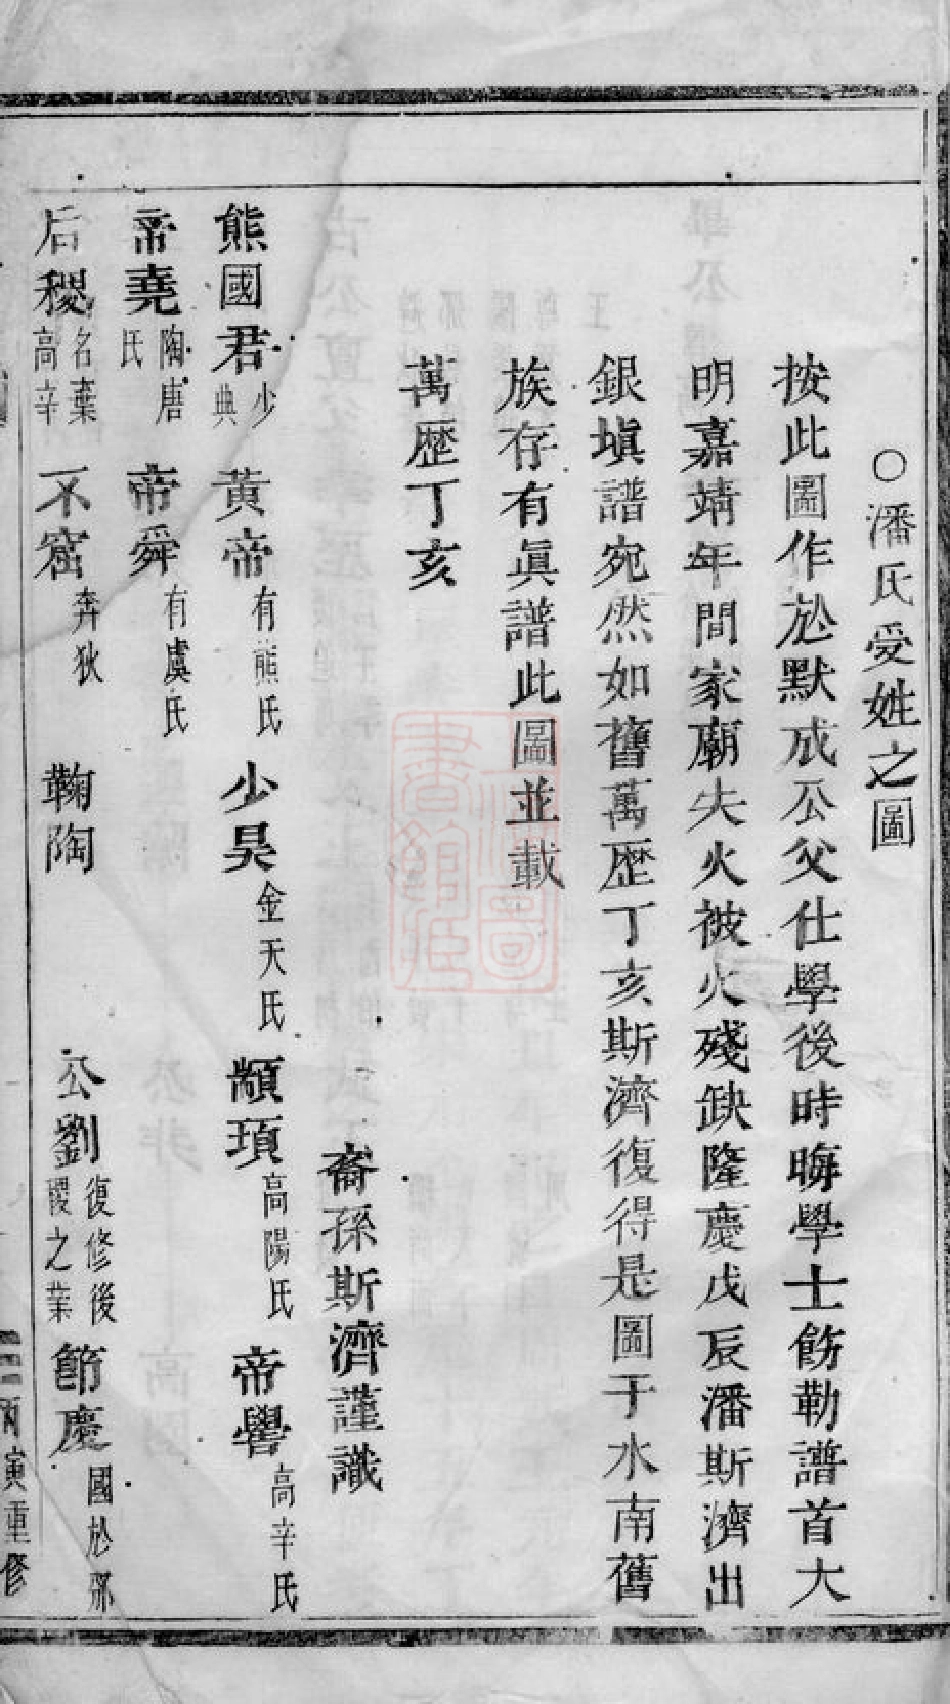 ○潘氏受姓之圖
按此圖作於默成公父仕學後時晦學士飭勒譜首大
明嘉靖年間家廟失火被火殘缺隆慶戊辰潘斯濟出
銀塡譜宛然如舊萬歷丁亥斯濟復得是圖于水南舊
族存有眞譜此圖並載
萬歷丁亥
裔孫斯濟謹識
熊國君 少典 黃帝 有熊氏 少昊 金天氏 顓頊 高陽氏 帝嚳 高辛氏
帝堯 陶唐氏 帝舜 有虞氏
后稷 名棄 高辛 不窋 奔狄 鞠陶 公劉 復修後稷之業 節慶 國於邠
丙寅重修